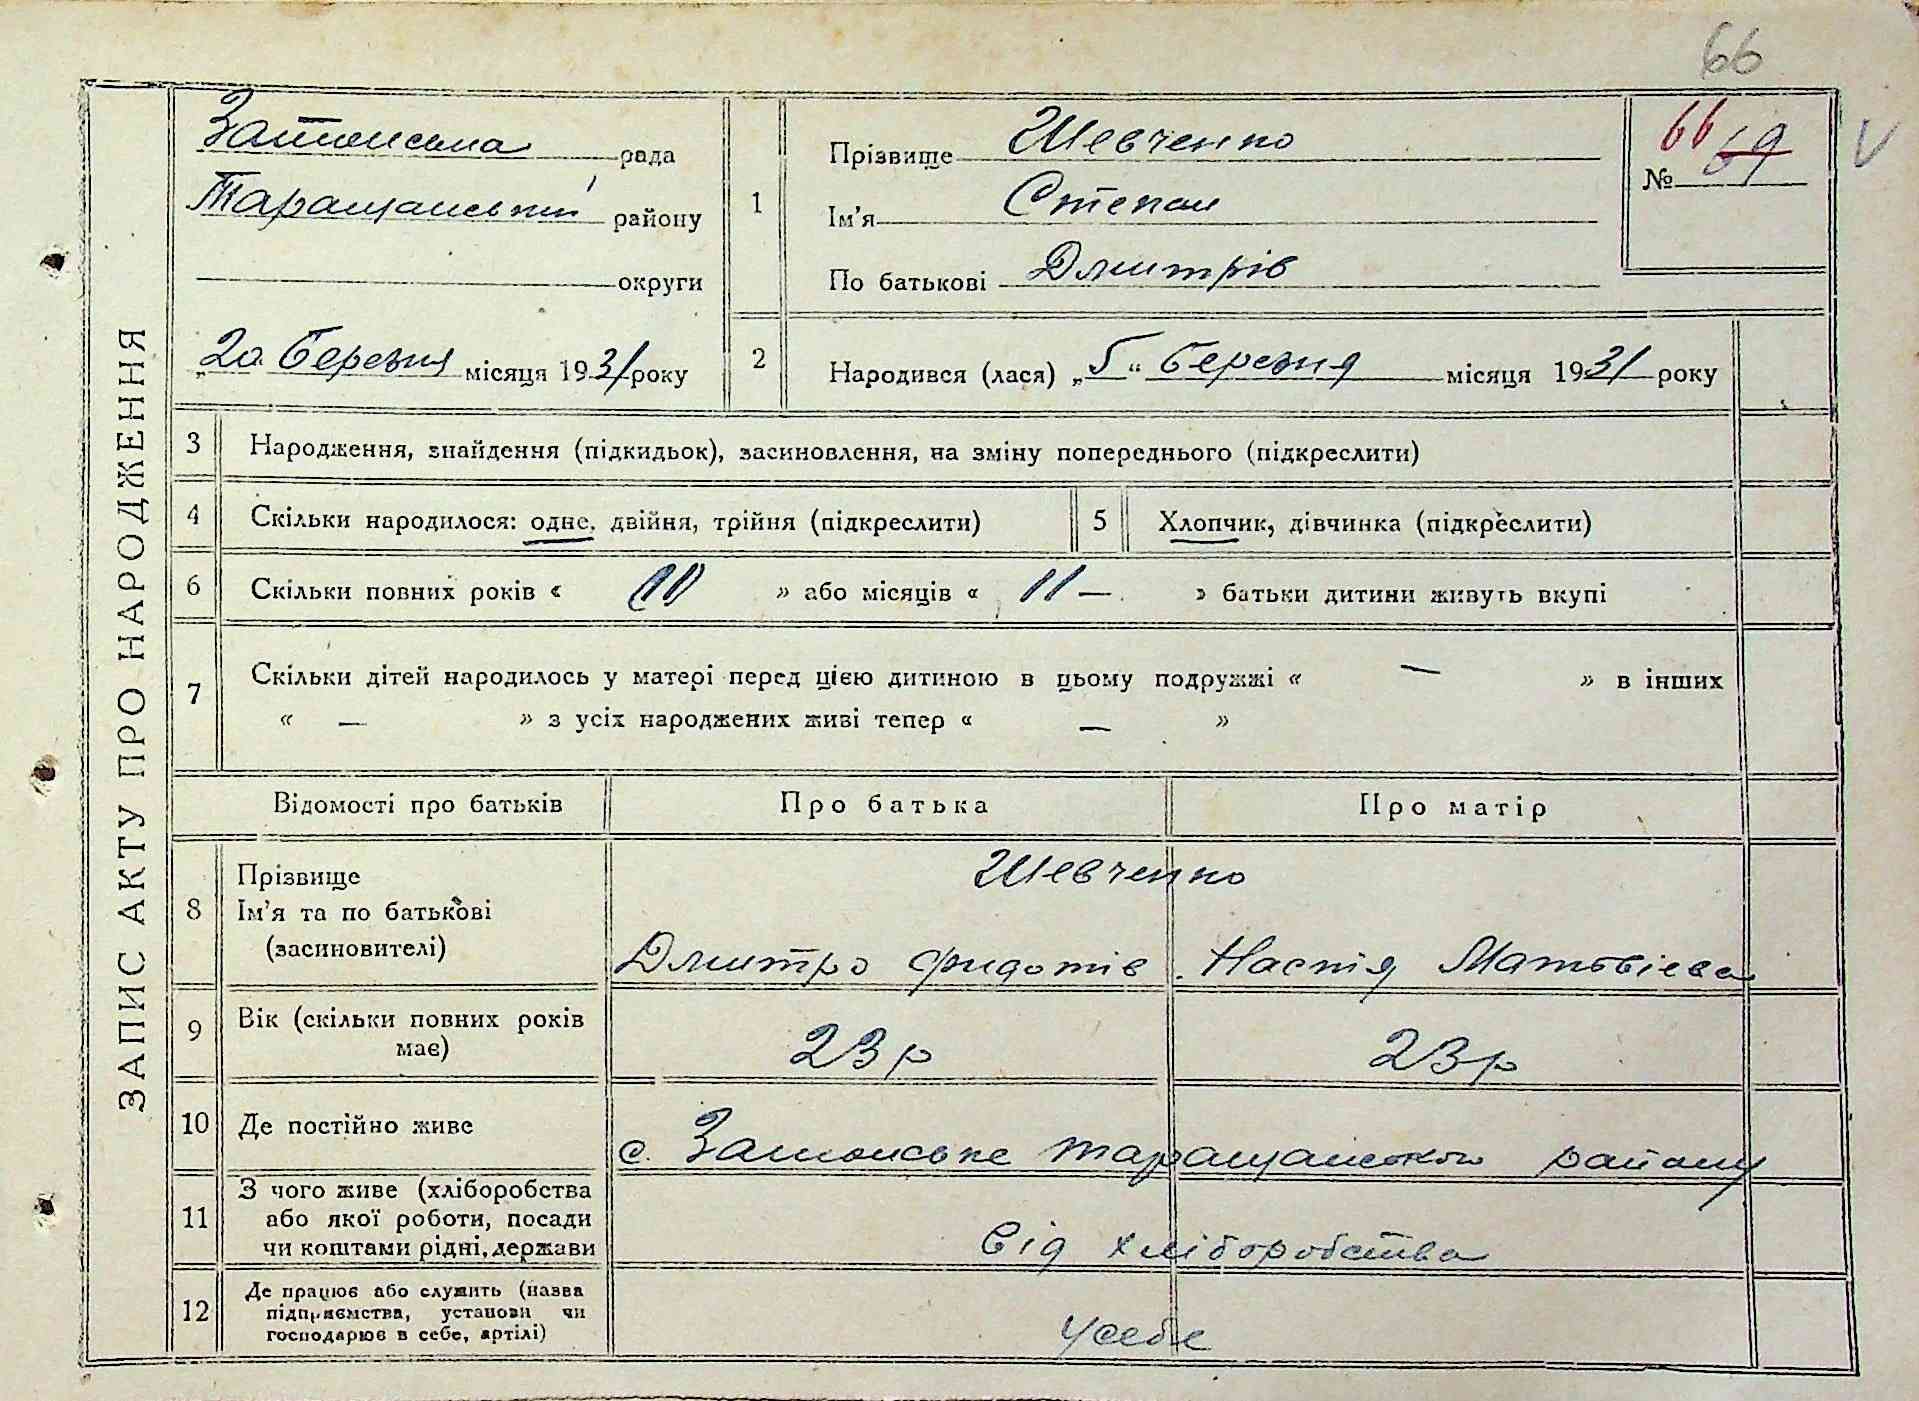 66
ЗАПИС АКТУ ПРО НАРОДЖЕННЯ
рада
Таращанський району
округи
„20 березня місяця 1931 року
1
Прізвище Шевченко
Ім'я Степан
По батькові Дмитрів
66 69
№
V
2
Народився (лася) „5“ березня місяця 1931 року
3 Народження, знайдення (підкидьок), засиновлення, на зміну попереднього (підкреслити)
4 Скільки народилося: одне, двійня, трійня (підкреслити)
5 Хлопчик, дівчинка (підкреслити)
6 Скільки повних років « » або місяців « 11 — » батьки дитини живуть вкупі
7 Скільки дітей народилось у матері перед цією дитиною в цьому подружжі « — » в інших
« — » з усіх народжених живі тепер « — »
Відомості про батьків Про батька Про матір
8 Прізвище
Ім'я та по батькові
(засиновителі)
Шевченко
Дмитро Фидотів Настя Матвієва
9 Вік (скільки повних років
має)
23 р 23 р
10 Де постійно живе
с. Таращанського району
11 З чого живе (хліборобства
або якої роботи, посади
чи коштами рідні, держави
Від хліборобства
12 Де працює або служить (назва
підприємства, установи чи
господарює в себе, артілі)
У себе